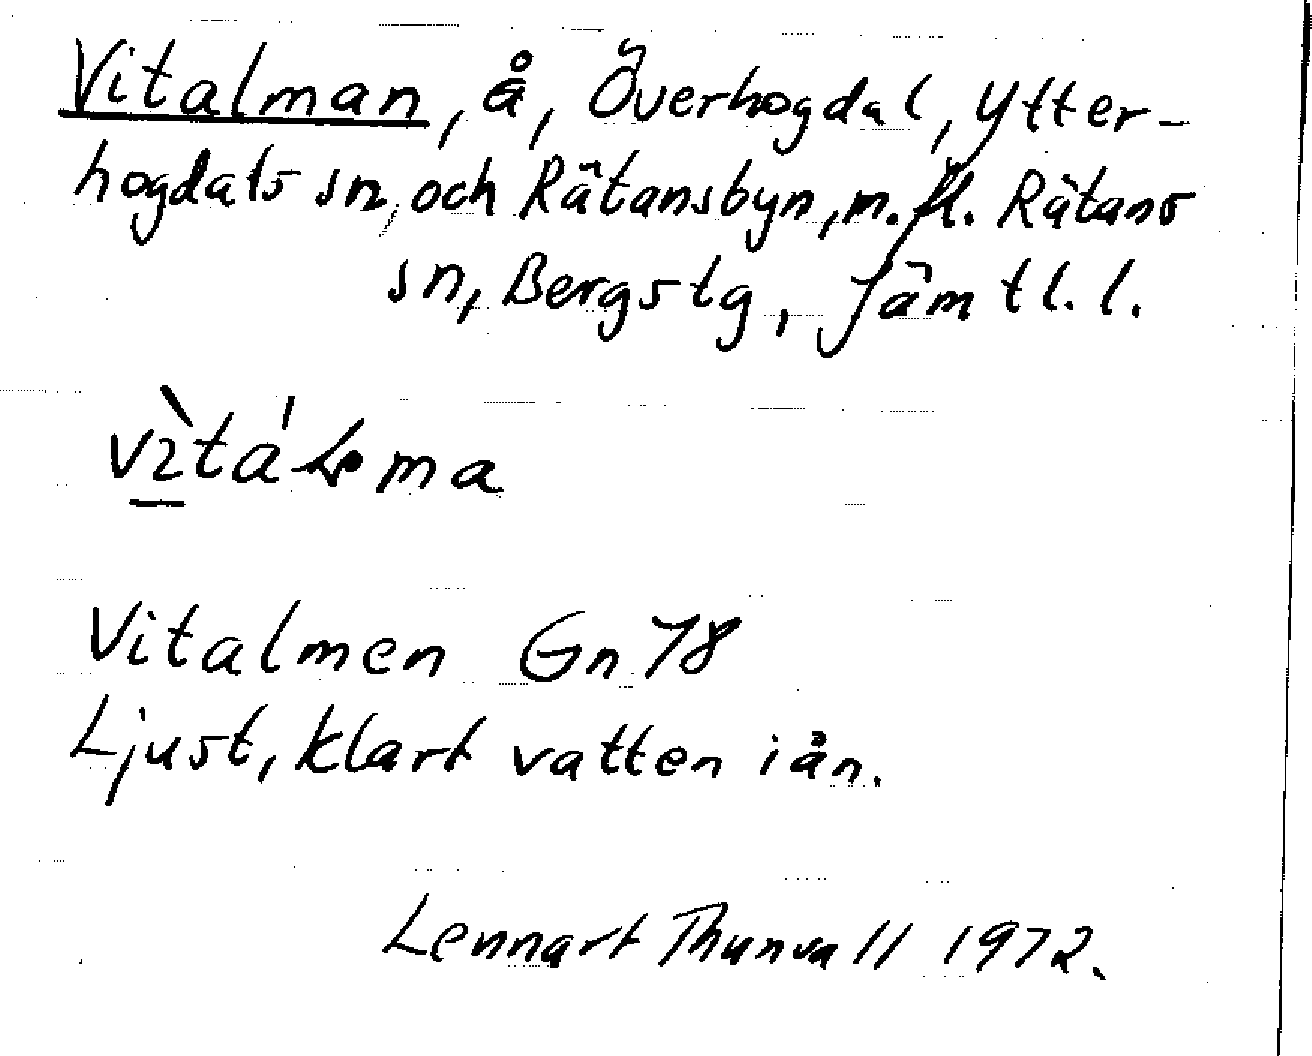 Vitalman, å, Överhogdal, Ytter-
hogdals sn, och Rätansbyn, m.fl. Rätans
sn, Bergs tg, Jämtl.l.
Vitalmen Gn 78
Ljust, klart vatten i ån.
Lennart Thunvall 1972.